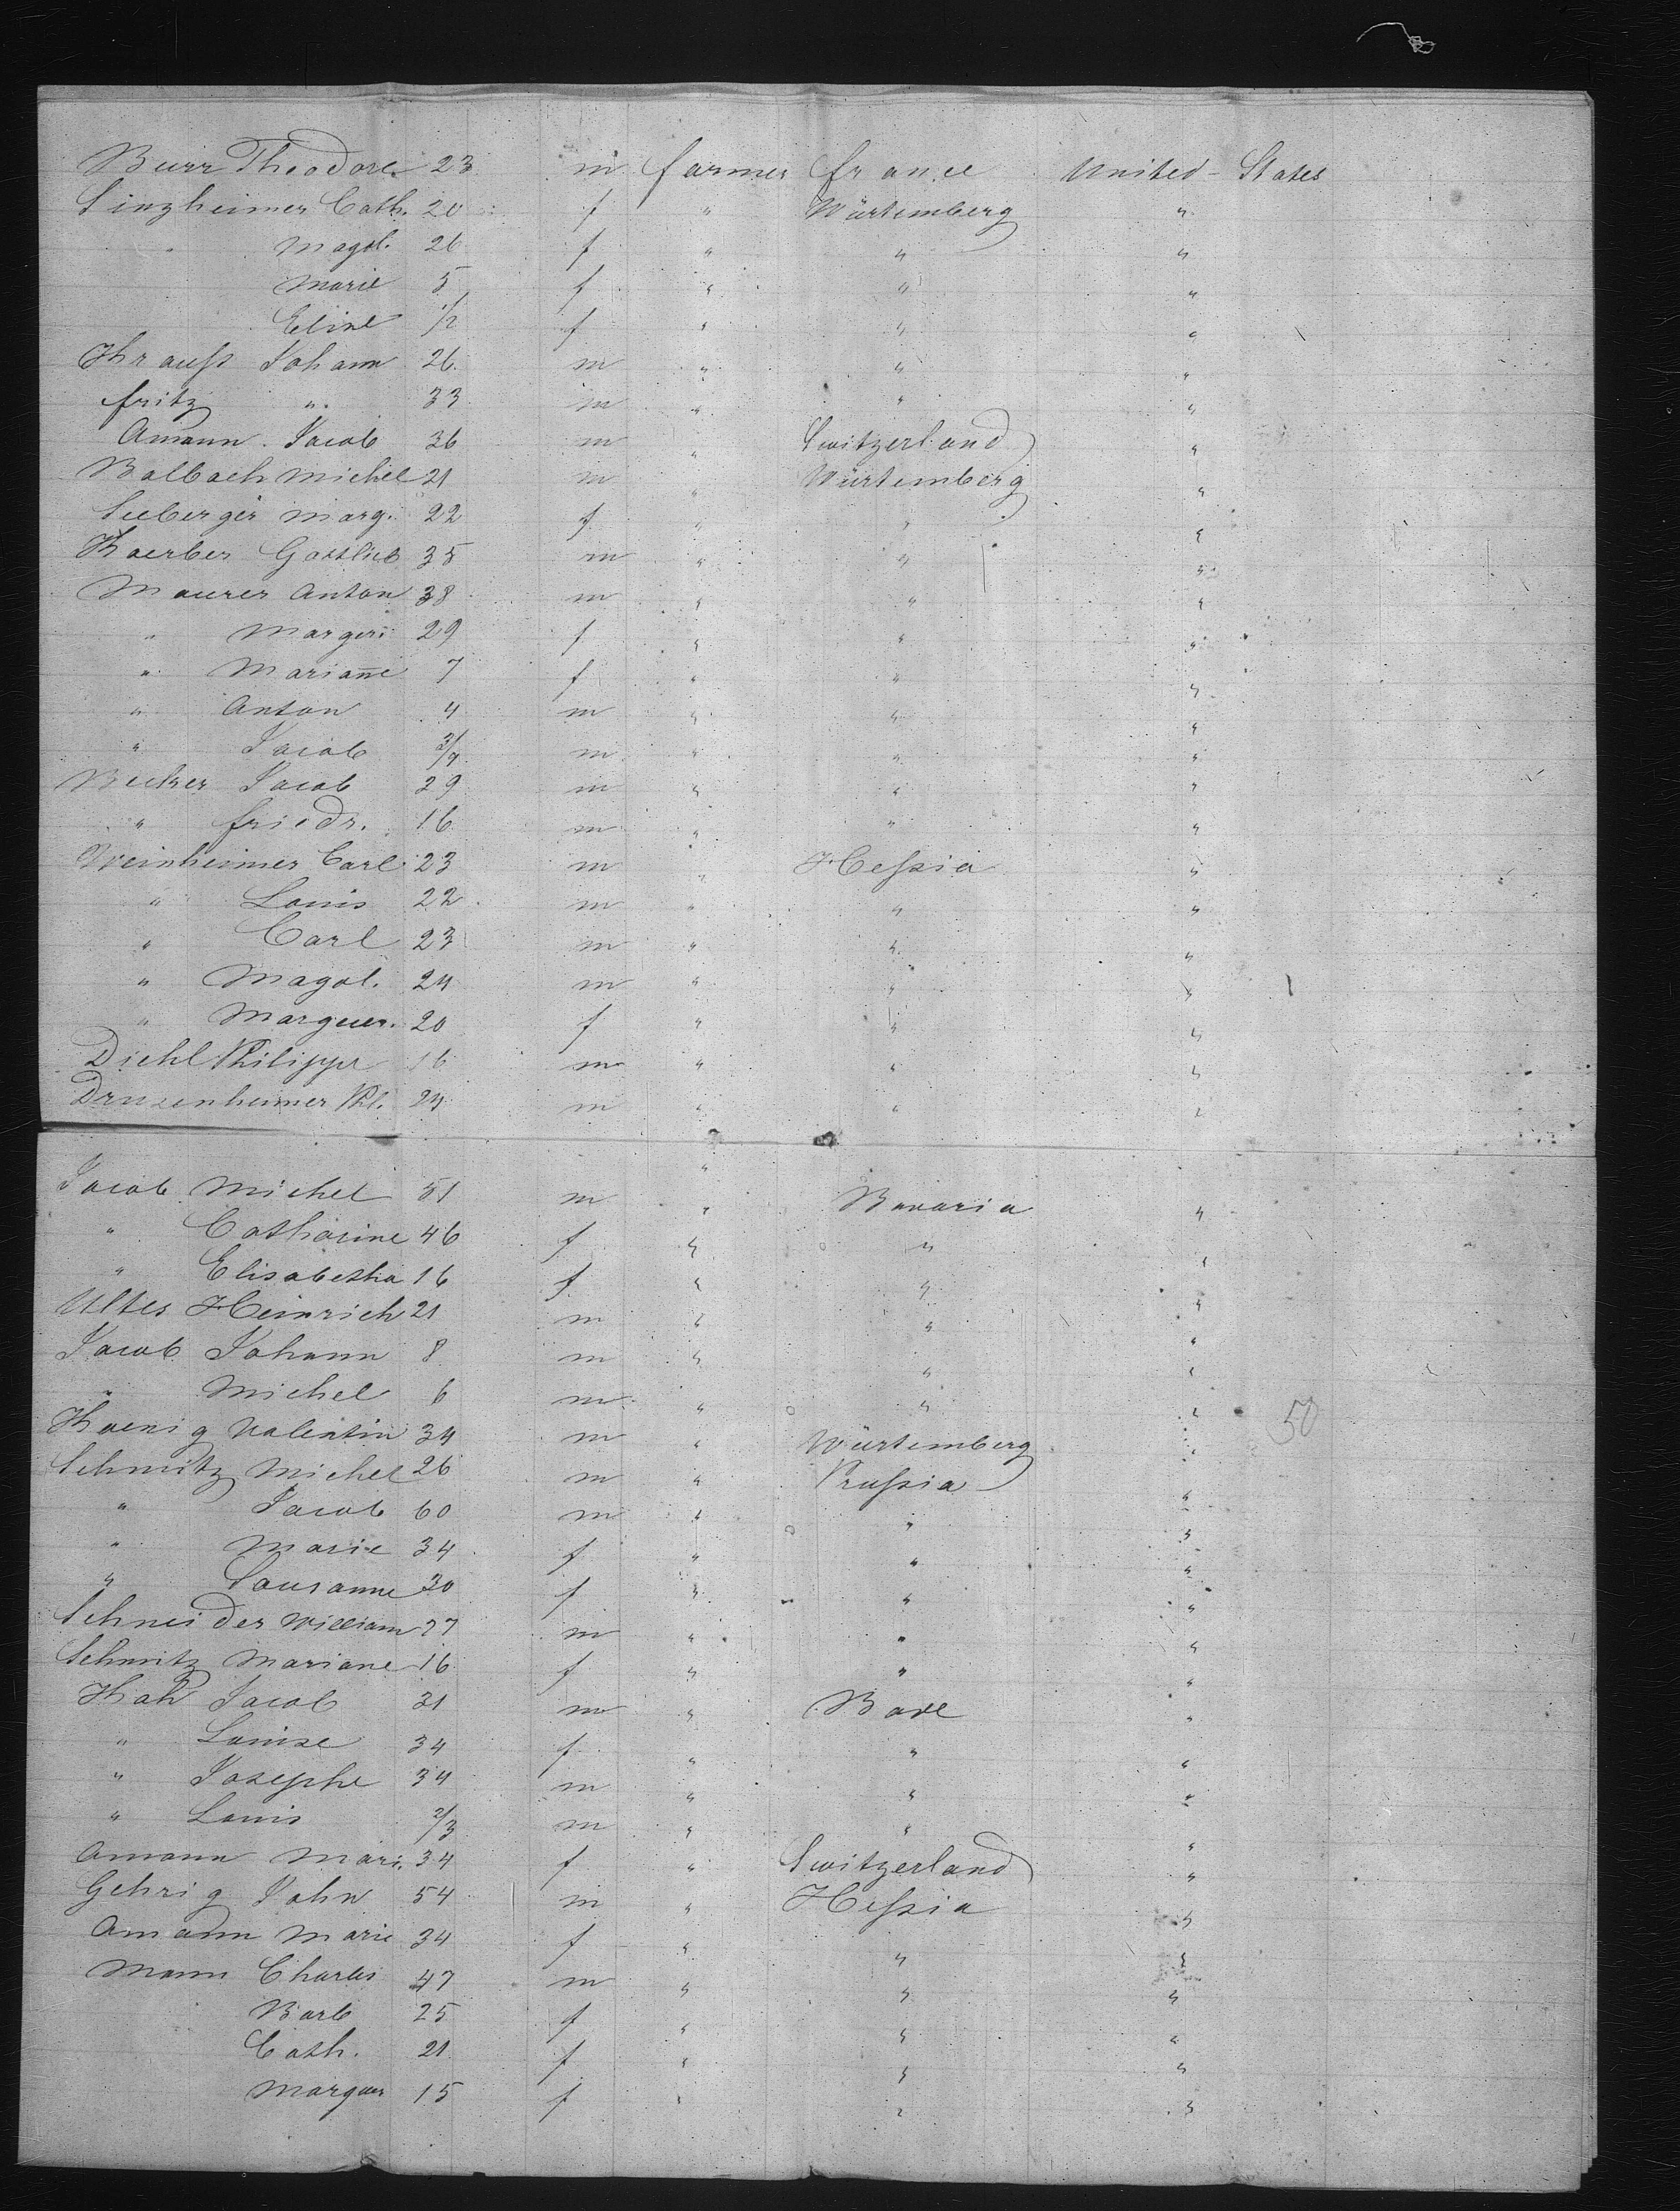 Burr Theodore 23 m farmer france United-States
Sinzheimer Cath. 20 f " Würtemberg "
" Magd. 26 f " " "
Marie 5 f " " "
Elise 1/2 f " " "
Khrauss Johann 26 m " " "
fritz " 33 m " " "
Amann Jacob 36 m " Switzerland "
Balbach Michel 21 m " Würtemberg "
Seeberger Marg. 22 f " " "
Kaerber Gottlieb 35 m " " "
Maurer Anton 38 m " " "
" Margeri 29 f " " "
" Marian̄e 7 f " " "
" Anton 4 m " " "
" Jacob 3/4 m " " "
Becker Jacob 29 m " " "
" friedr. 16 m " " "
Weinheimer Carl 23 m " Hessia "
" Louis 22 m " " "
" Carl 23 m " " "
" Magd. 24 m " " "
" Marguer. 20 f " " "
Diehl Philippe 16 m " " "
Druzenheimer Phl. 24 m " " "
"
Jacob Michel 51 m " Bavaria "
" Catharine 46 f " " "
" Elisabetha 16 f " " "
Ultes Heinrich 21 m " " "
Jacob Johann 8 m " " "
" Michel 6 m " " "
Koenig Valentin 34 m " Würtemberg " 50
Schmitz Michel 26 m " Prussia "
" Jacob 60 m " " "
" Marie 34 f " " "
" Sousanne 30 f " " "
Schneider William 27 m " " "
Schmitz Mariane 16 f " " "
Hah Jacob 31 m " Bade "
" Louise 34 f " " "
" Josephe 34 m " " "
" Louis 2/3 m " " "
Amann Mari. 34 f " Switzerland "
Gehrig John 54 m " Hessia "
Amann Marie 34 f " " "
Mann Charles 47 m " " "
Barb 25 f " " "
Cath. 21 f " " "
Marguer 15 f " " "